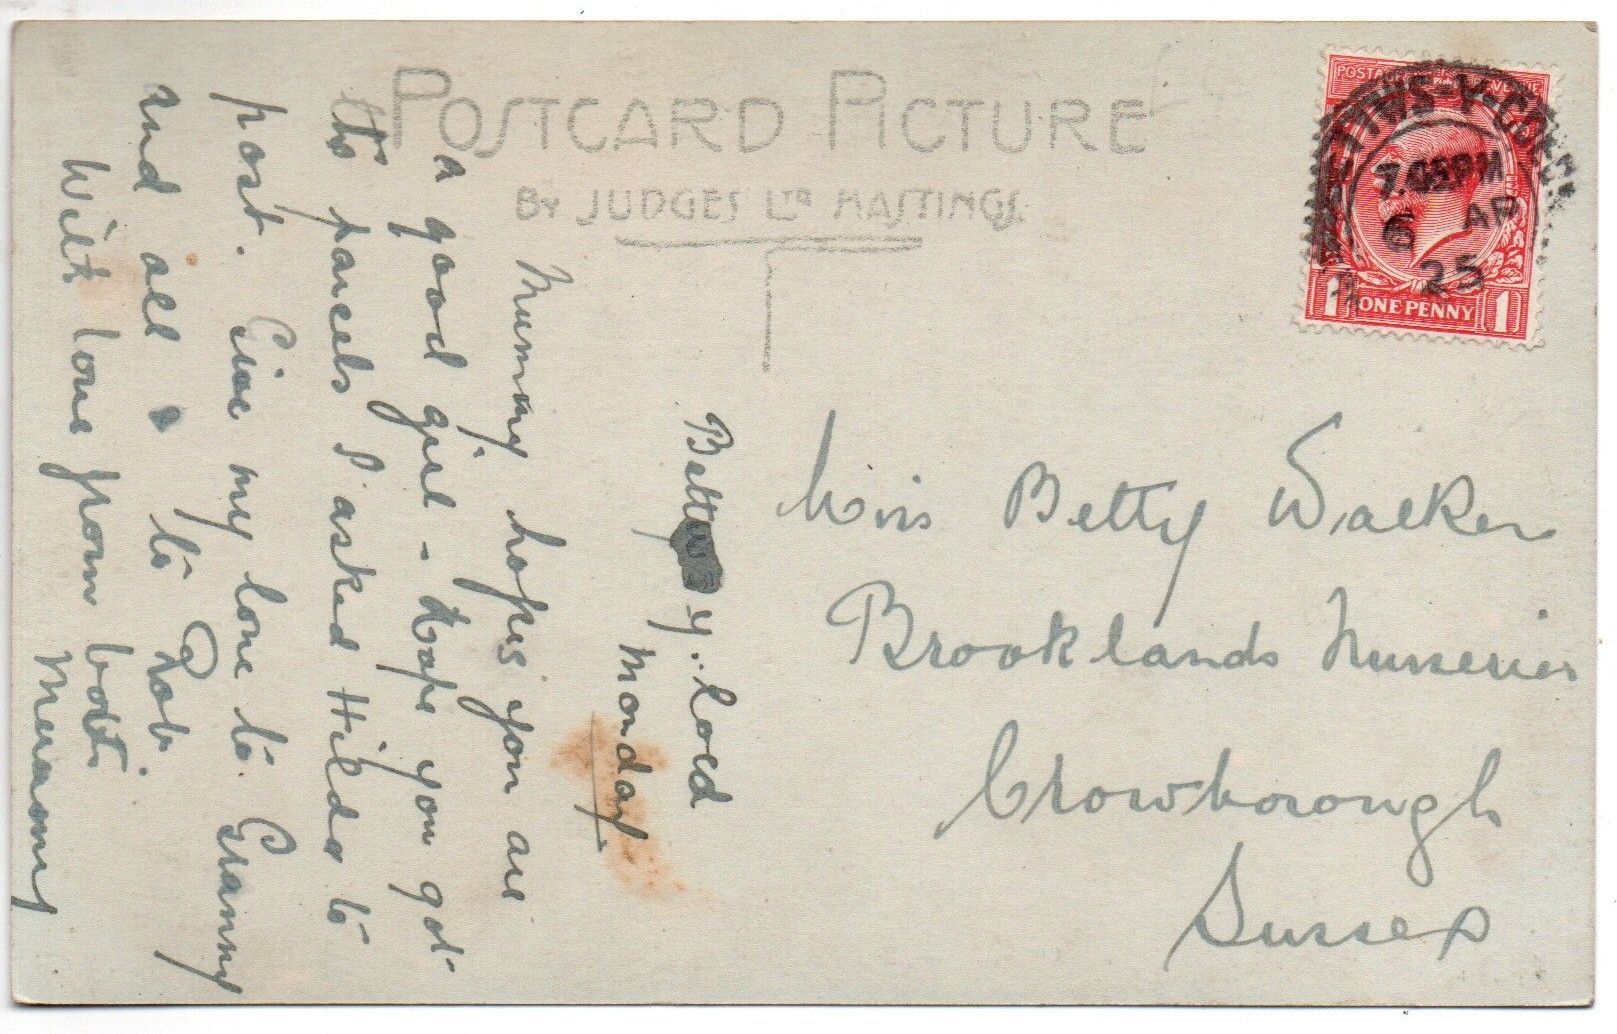 POSTCARD PICTURE
BY JUDGES LTD HASTINGS
POSTAGE REVENUE
BETTWS-Y-COED
7.05PM
6 AP
25
1 ONE PENNY 1
Bettws-y-Coed
Monday
Mummy hopes you are
a good girl - Hope you got
the parcels I asked Hilda to
post. Give my love to Granny
and all to Rob.
With love from both
Mummy
Miss Betty Walker
Brooklands Nurseries
Crowborough
Sussex